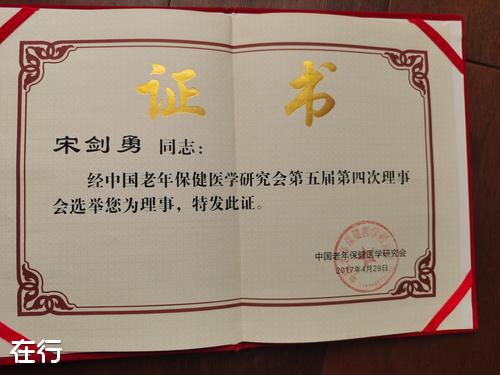 证书
宋剑勇 同志：
经中国老年保健医学研究会第五届第四次理事
会选举您为理事，特发此证。
中国老年保健医学研究会
2017年4月29日
在行